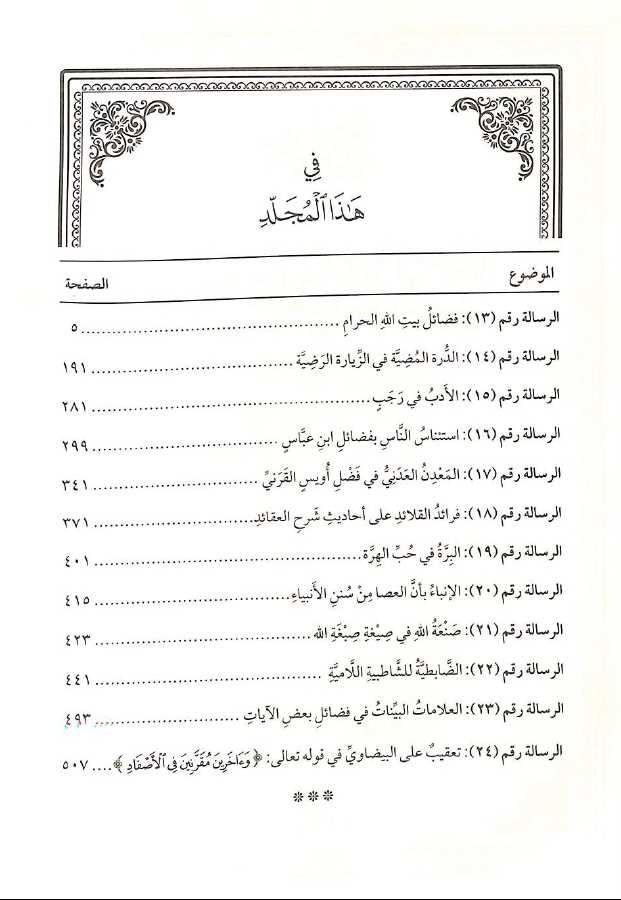 في
هَٰذَا ٱلْمُجَلّدِ
الموضوع الصفحة
الرسالة رقم (١٣): فضائلُ بيتِ اللهِ الحرامِ ........................................ ٥
الرسالة رقم (١٤): الدُّرة المُضِيَّة في الزِّيارة الرَضِيَّة ........................................ ١٩١
الرسالة رقم (١٥): الأَدبُ في رَجَبٍ ........................................ ٢٨١
الرسالة رقم (١٦): استئناسُ النَّاسِ بفضائلِ ابنِ عبَّاسٍ ........................................ ٢٩٩
الرسالة رقم (١٧): المَعْدِنُ العَدَنِيُّ في فَضْلِ أُويسٍ القَرَنيِّ ........................................ ٣٤١
الرسالة رقم (١٨): فرائدُ القلائدِ على أحاديثِ شَرحِ العقائدِ ........................................ ٣٧١
الرسالة رقم (١٩): البِرَّةُ في حُبِّ الهِرَّة ........................................ ٤٠١
الرسالة رقم (٢٠): الإنباءُ بأنَّ العصا مِنْ سُننِ الأَنبياءِ ........................................ ٤١٥
الرسالة رقم (٢١): صَنْعَةُ اللهِ في صِيْغةِ صِبْغَةِ الله ........................................ ٤٢٣
الرسالة رقم (٢٢): الضَّابطيَّةُ للشَّاطبيةِ اللَّاميَّةِ ........................................ ٤٤١
الرسالة رقم (٢٣): العلاماتُ البيِّناتُ في فضائلِ بعضِ الآياتِ ........................................ ٤٩٣
الرسالة رقم (٢٤): تعقيبٌ على البيضاويِّ في قوله تعالى: ﴿وَءَاخَرِينَ مُقَرَّنِينَ فِي ٱلْأَصْفَادِ﴾ .... ٥٠٧
***